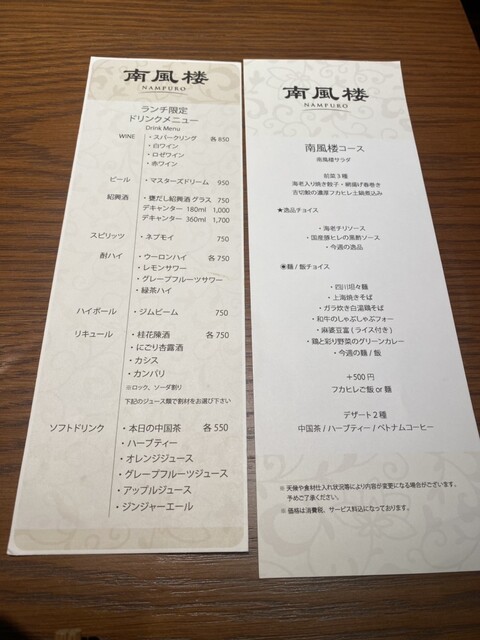 南風楼
NAMPURO
ランチ限定
ドリンクメニュー
Drink Menu
WINE ・スパークリング 各 850
・白ワイン
・ロゼワイン
・赤ワイン
ビール ・マスターズドリーム 950
紹興酒 ・甕だし紹興酒 グラス 750
デキャンター 180ml 1,000
デキャンター 360ml 1,700
スピリッツ ・ネプモイ 750
酎ハイ ・ウーロンハイ 各 750
・レモンサワー
・グレープフルーツサワー
・緑茶ハイ
ハイボール ・ジムビーム 750
リキュール ・桂花陳酒 各 750
・にごり杏露酒
・カシス
・カンパリ
※ロック、ソーダ割り
下記のジュース類で割材をお選び下さい
ソフトドリンク ・本日の中国茶 各 550
・ハーブティー
・オレンジジュース
・グレープフルーツジュース
・アップルジュース
・ジンジャーエール
南風楼
NAMPURO
南風楼コース
南風楼サラダ
前菜 3 種
海老入り焼き餃子・網揚げ春巻き
吉切鮫の濃厚フカヒレ土鍋煮込み
★逸品チョイス
・海老チリソース
・国産豚ヒレの黒酢ソース
・今週の逸品
◉麺 / 飯チョイス
・四川坦々麺
・上海焼きそば
・ガラ炊き白湯鶏そば
・和牛のしゃぶしゃぶフォー
・麻婆豆腐 ( ライス付き )
・鶏と彩り野菜のグリーンカレー
・今週の麺 / 飯
＋500 円
フカヒレご飯 or 麺
デザート 2 種
中国茶 / ハーブティー / ベトナムコーヒー
※ 天候や食材仕入れ状況等により内容が変更になる場合がございます。
予めご了承ください。
※ 価格は消費税、サービス料込になっております。